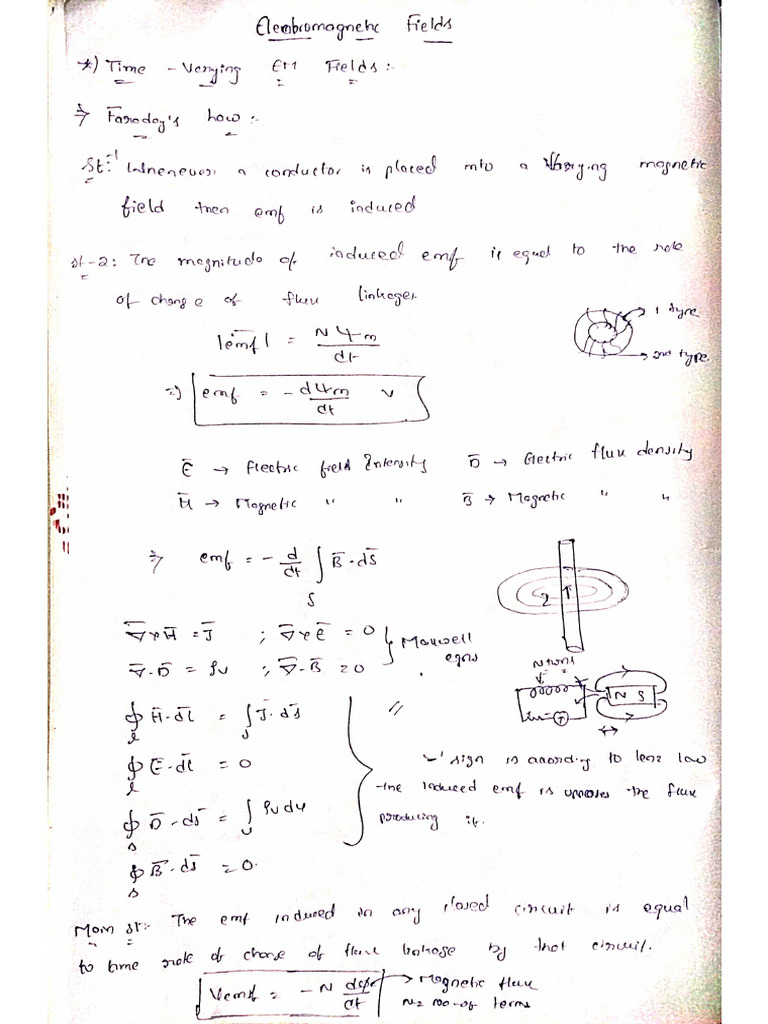 Electromagnetic Fields
*) Time - Varying EM Fields :-
⇒ Faraday's Law :-
St:-1 Whenever a conductor is placed into a Varying magnetic
field then emf is induced
st-2: The magnitude of induced emf is equal to the rate
of change of flux linkages.
|emf| = N Ψm / dt
1 type
2nd type.
⇒) emf = - dΨm / dt V
Ē → Electric field Intensity D̄ → Electric flux density
H̄ → Magnetic " " B̄ → Magnetic " "
⇒ emf = - d/dt ∫S B̄ · dS̄
2 1
∇̄ × H̄ = J̄ ; ∇̄ × Ē = 0 } Maxwell
∇̄ · D̄ = ρv ; ∇̄ · B̄ = 0 eqns
N turns
N S
∮l H̄ · dl̄ = ∫s J̄ · ds̄ //
∮l Ē · dl̄ = 0
'-' sign is according to lenz law
the induced emf is opposes the flux
producing it.
∮s D̄ · ds̄ = ∫v ρv dv
∮s B̄ · ds̄ = 0.
Mam st:- The emf induced in any closed circuit is equal
to time rate of change of flux linkage by that circuit.
Vemf = - N dφ / dt → Magnetic flux
N = no-of terms